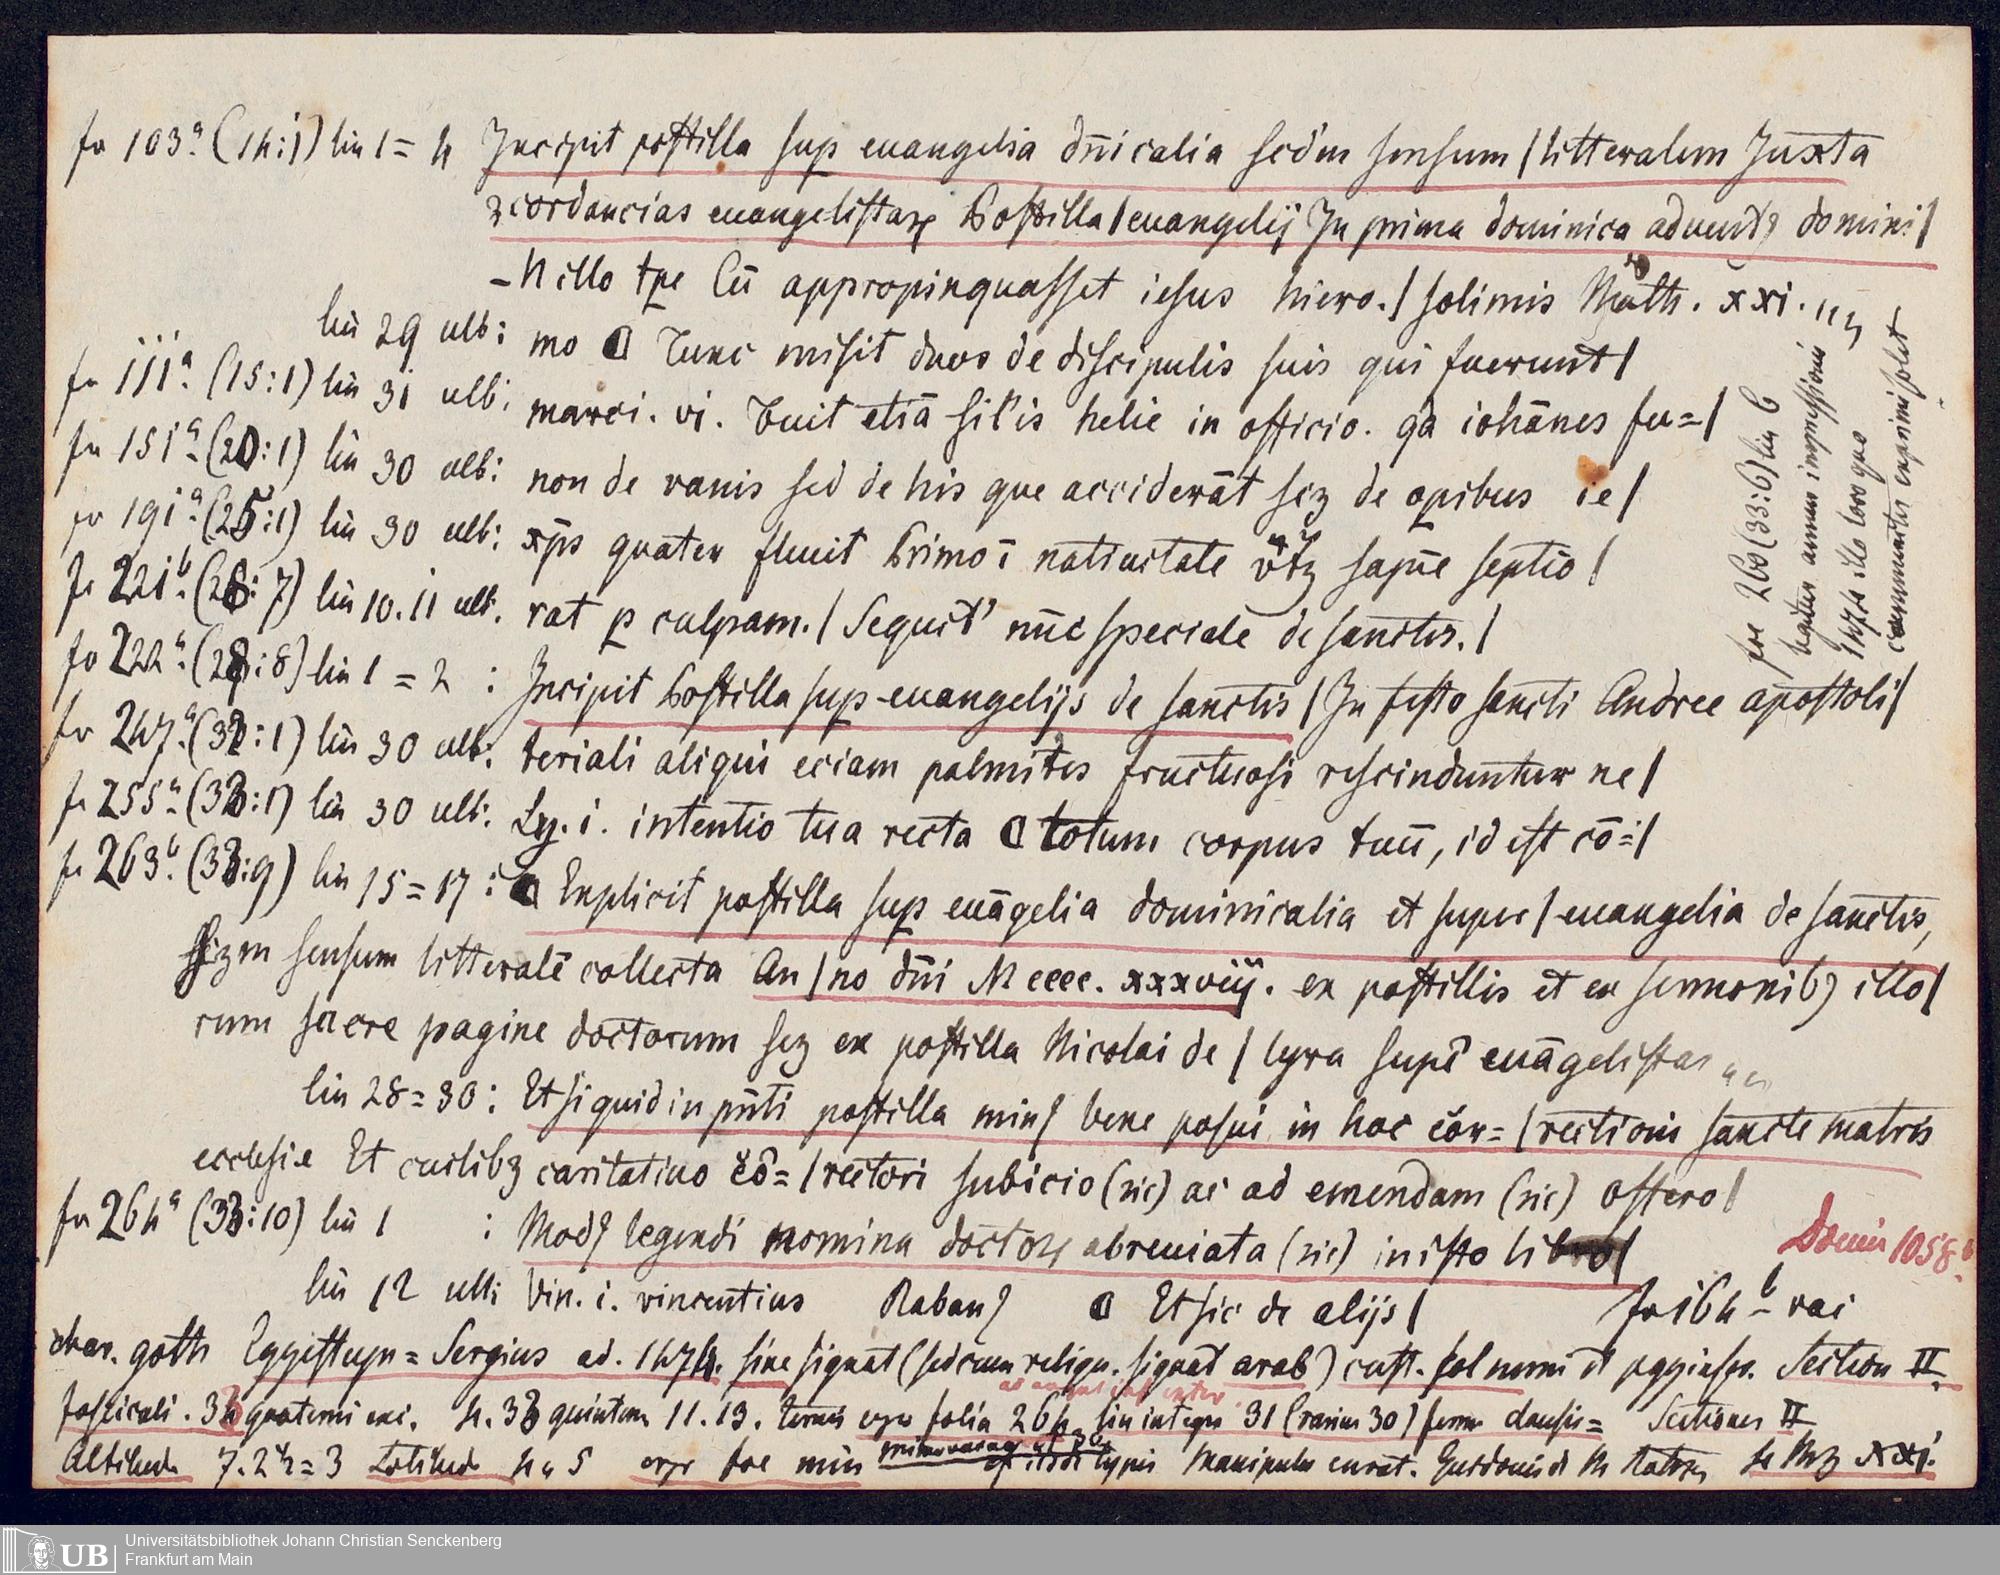 fo 103a (14:1) lin 1=4 Incipit postilla sup euangelia dn̄icalia scd'm sensum / litteralem Juxta
ꝯcordancias euangelistaꝝ Postilla / euangelij In prima dominica aduentꝰ domini /
-N illo tpe Cū appropinquasset iesus hiero. / solimis Math. xxi.
lin 29 ult: mo Tunc misit duos de discipulis suis qui fuerunt /
fo 111a (15:1) lin 31 ult: marci. vi. Fuit etiā sil'is helie in officio. qa iohānes fu= /
fo 151a (20:1) lin 30 ult: non de vanis sed de his que acciderāt scꝫ de opibus ie /
fo 191a (25:1) lin 30 ult: xp̄s quater fleuit Primo ī natiuitate sapīe septīo /
fo 221b (28:7) lin 10.11 ult. rat p culpam. / Sequit' nūc speciale de sanctis. /
fo 222a (28:8) lin 1=2 : Incipit Postilla sup euangelijs de sanctis / In festo sancti Andree apostoli /
fo 247a (32:1) lin 30 ult: teriali aliqui eciam palmites fructuosi rescinduntur ne /
fo 255a (33:1) lin 30 ult: Ly. i. intentio tua recta totum corpus tuū, id est cō= /
fo 263b (33:9) lin 15=17 : Explicit postilla sup euāgelia dominicalia et super / euangelia de sanctis,
scꝫm sensum litteralē collecta An / no dn̄i M cccc. xxxvij. ex postillis et ex sermonibꝰ illo /
rum sacre pagine doctorum scꝫ ex postilla Nicolai de / lyra supe euāgelistas
lin 28=30: Et si quid in pn̄ti postilla minꝰ bene posui in hoc cor= / rectioni sancte matris
ecclesie Et cuilibꝫ caritatiuo co= / rectori subicio (sic) ac ad emendam (sic) offero /
fo 264a (33:10) lin 1 : Modꝰ legendi nomina doctoꝝ abreuiata (sic) in isto libro /
Daunu 1058.b
lin 12 ult: Vin. i. vincentius Rabanꝰ Et sic de alijs / fo 164b vac
char. goth Eggesteyn= Sergius ad. 1474. sine signat (sed cum religu. signat arab) cust. fol num et pggiafr. Section II.
fasciculi. 34 quaterni exc. 4. 33 quintern 11.13. ergo folia 264 lin integre 31 (rarius 30) Sectiones II
Altitudo 7.2½=3 Latitudo 4 5 ergo foe min typis Manipulus curat. Guidonis d M Rotꝝ xxi.
foe 260 (33:6) lin 6
legitur annus impressionis
1474 illo loco quo
communiter exprimi solet